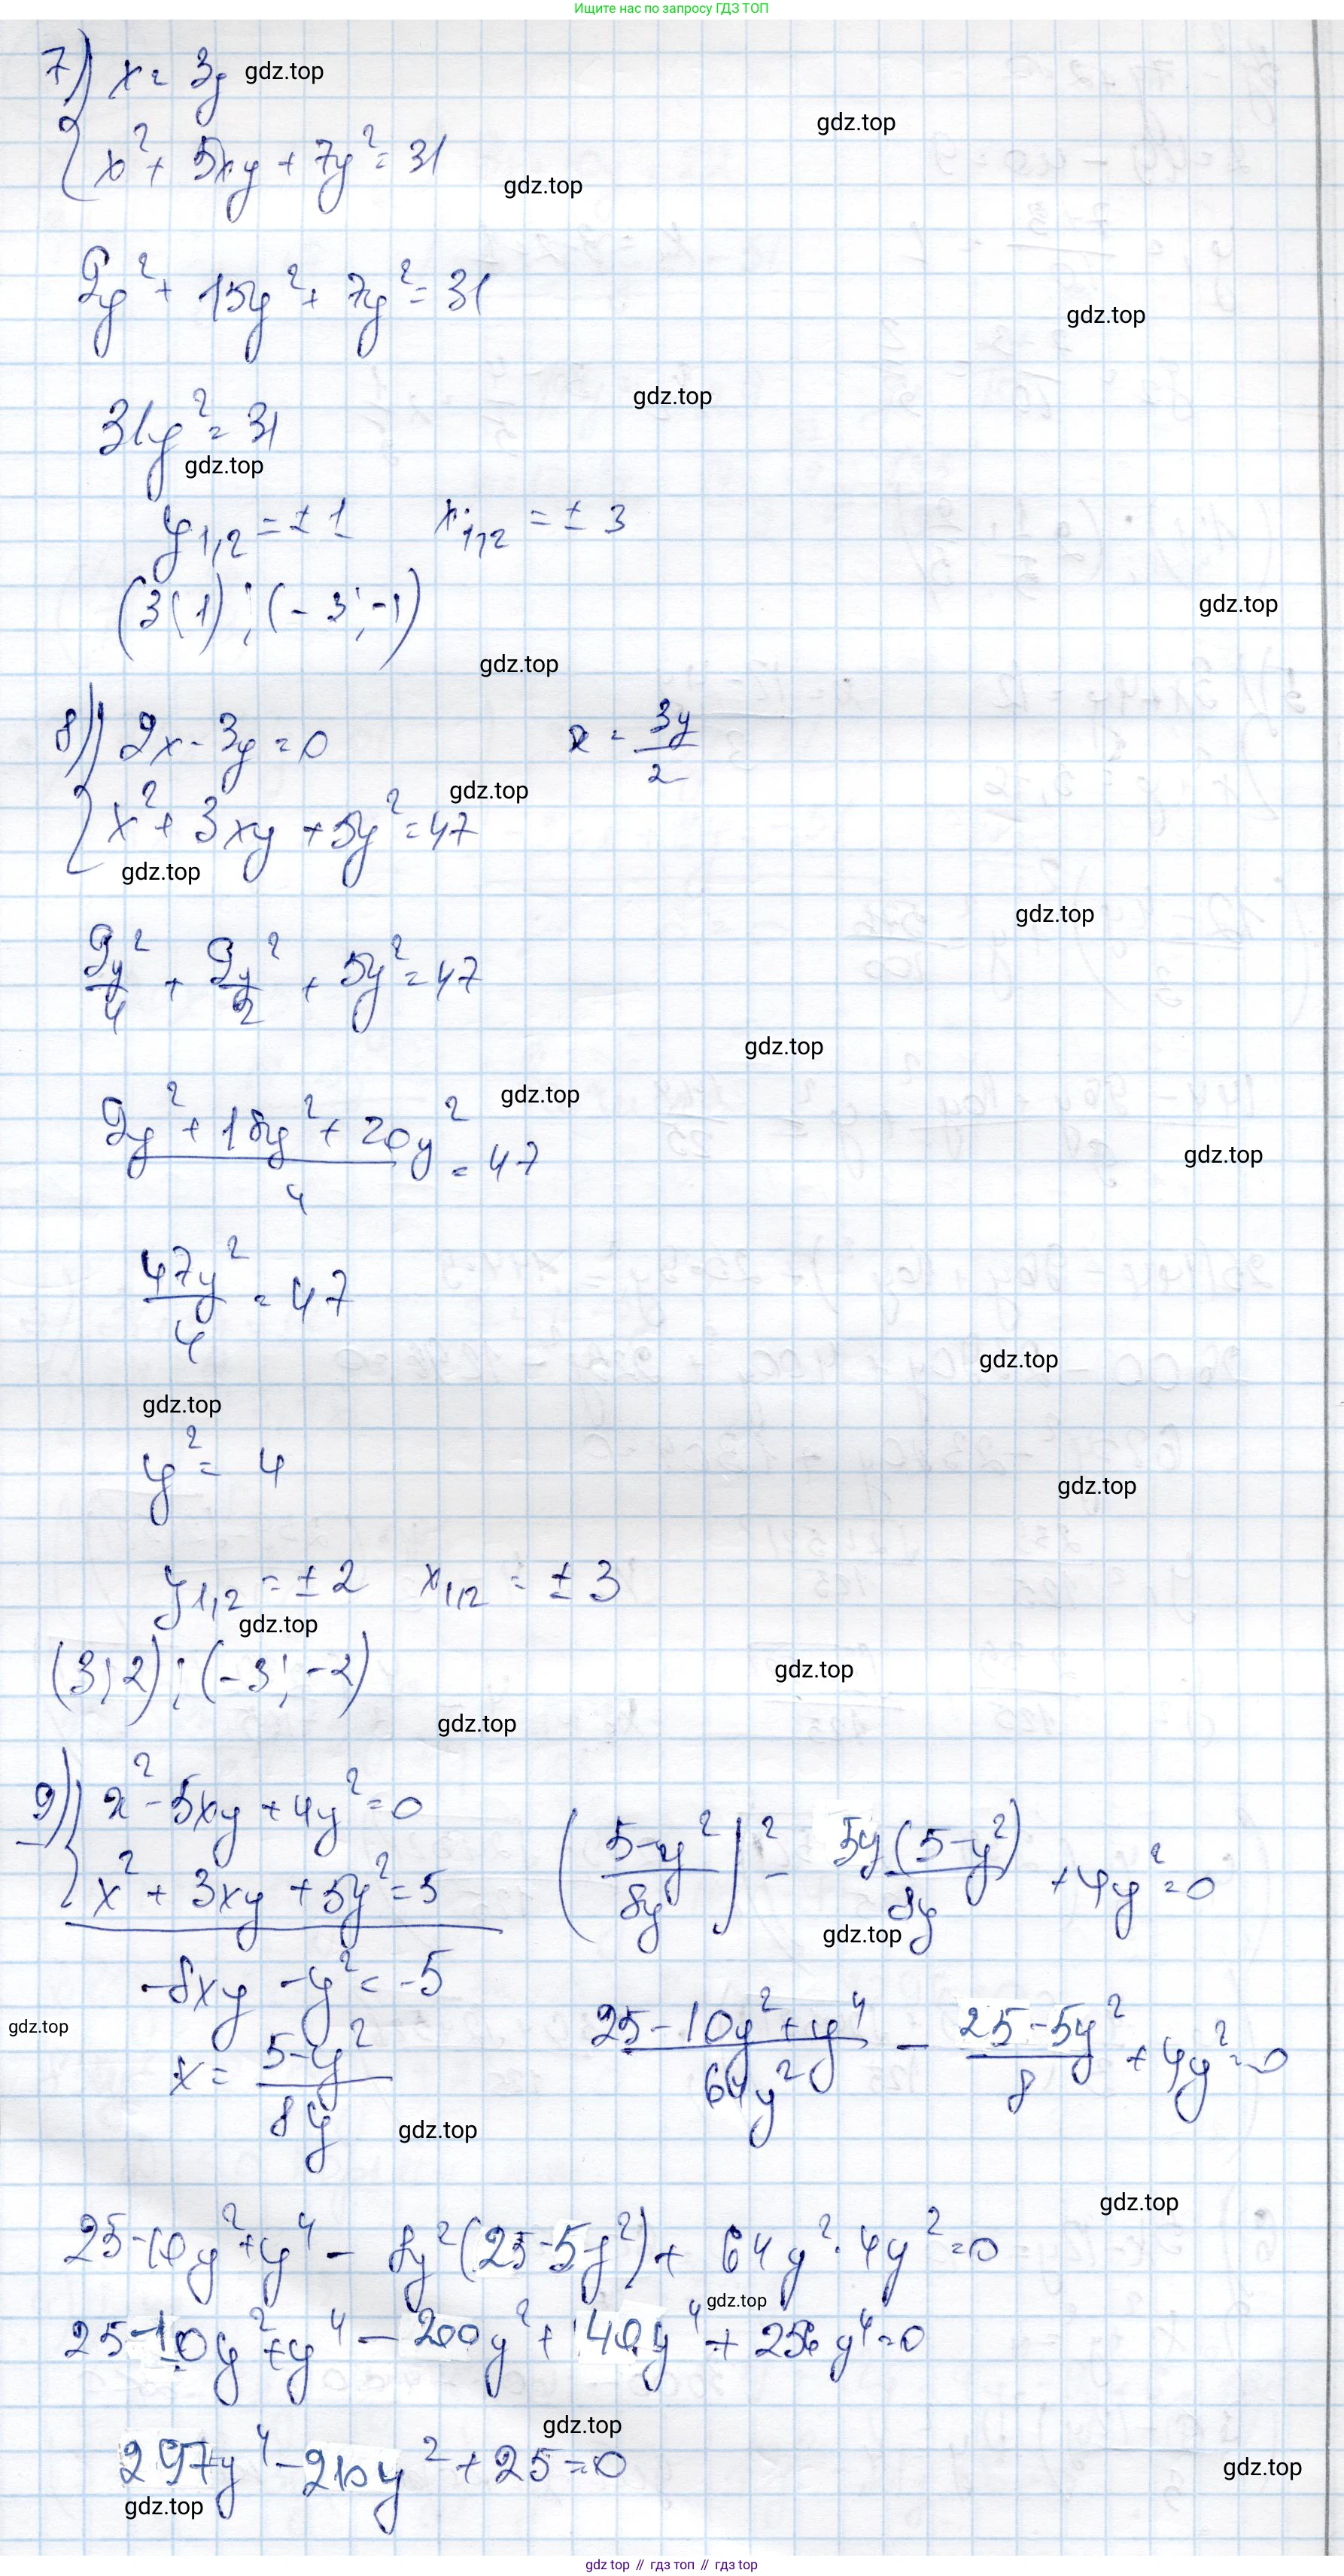 Ищите нас по запросу ГДЗ ТОП
7) { x = 3y gdz.top
gdz.top
x² + 5xy + 7y² = 31
gdz.top
9y² + 15y² + 7y² = 31
gdz.top
gdz.top
31y² = 31
gdz.top
y₁,₂ = ± 1 x₁,₂ = ± 3
(3; 1); (-3; -1)
gdz.top
gdz.top
8) { 2x - 3y = 0 x = 3y/2
gdz.top
x² + 3xy + 5y² = 47
gdz.top
gdz.top
9y²/4 + 9y²/2 + 5y² = 47
gdz.top
gdz.top
(9y² + 18y² + 20y²)/4 = 47
gdz.top
47y²/4 = 47
gdz.top
gdz.top
y² = 4
gdz.top
y₁,₂ = ± 2 x₁,₂ = ± 3
gdz.top
(3; 2); (-3; -2)
gdz.top
gdz.top
9) { x² - 5xy + 4y² = 0
x² + 3xy + 5y² = 5
((5-y²)/8y)² - 5y(5-y²)/8y + 4y² = 0
gdz.top
-8xy - y² = -5
gdz.top
x = (5-y²)/8y
(25 - 10y² + y⁴)/64y² - (25 - 5y²)/8 + 4y² = 0
gdz.top
gdz.top
25 - 10y² + y⁴ - 8y²(25 - 5y²) + 64y² · 4y² = 0
gdz.top
25 - 10y² + y⁴ - 200y² + 40y⁴ + 256y⁴ = 0
gdz.top
297y⁴ - 210y² + 25 = 0
gdz.top
gdz.top
gdz top // гдз топ // gdz top